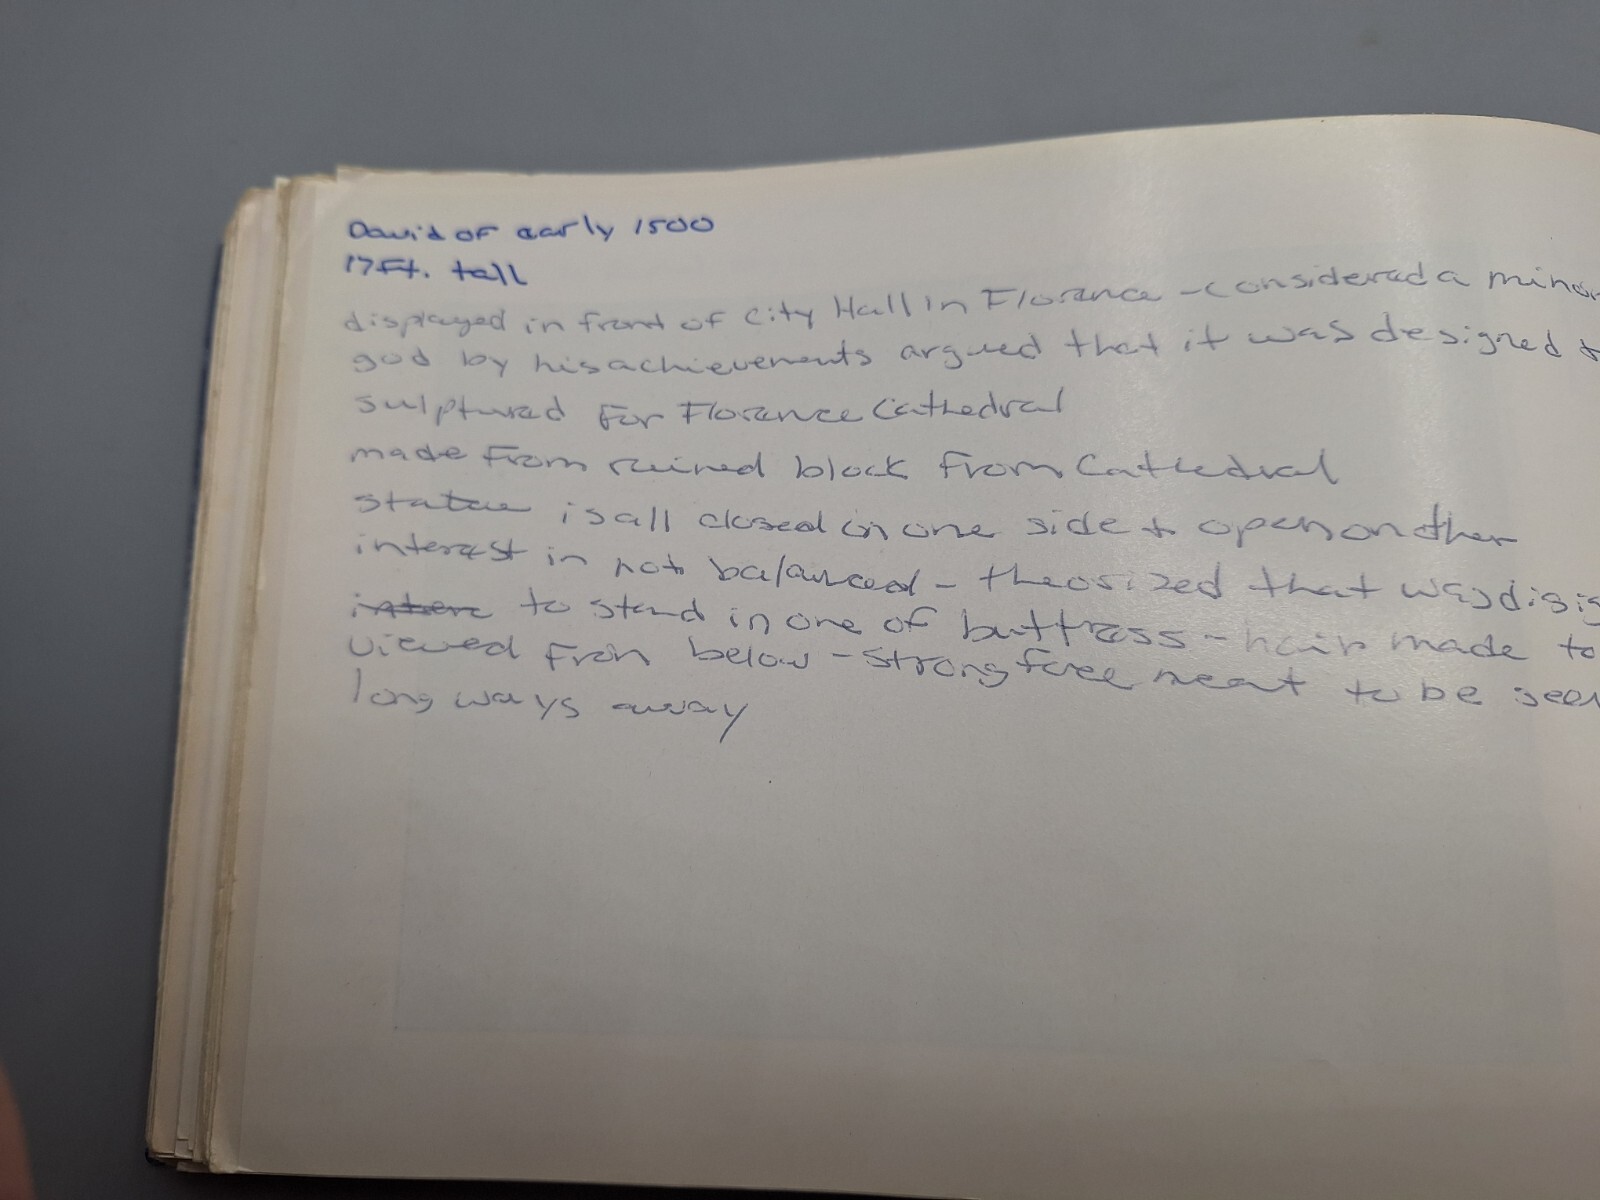 David of early 1500
17Ft. tall
displayed in front of City Hall in Florence - considered a minor
god by his achievements argued that it was designed
sulptured For Florence Cathedral
made From ruined block From Cathedral
statue is all closed on one side + open on other
interest in not balanced - theorized that was
to stand in one of buttress - hair made to
viewed From below - strong face meant to be seen
long ways away